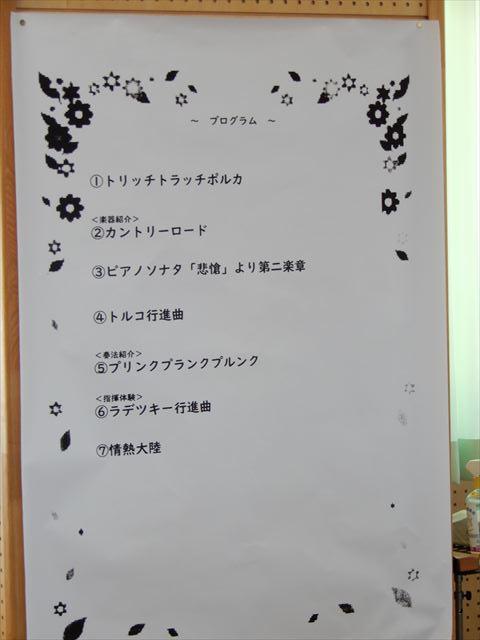 ～ プログラム ～
①トリッチトラッチポルカ
＜楽器紹介＞
②カントリーロード
③ピアノソナタ「悲愴」より第二楽章
④トルコ行進曲
＜奏法紹介＞
⑤プリンクプランクプルンク
＜指揮体験＞
⑥ラデツキー行進曲
⑦情熱大陸